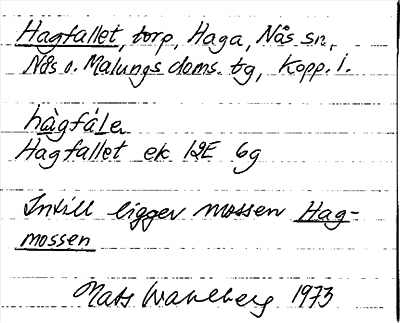 Hagfallet, torp, Haga, Nås sn,
Nås o. Malungs doms. tg, Kopp. l.
hàgfále
Hagfallet ek 12E 6g
Intill ligger mossen Hag-
mossen
Mats Wahlberg 1973